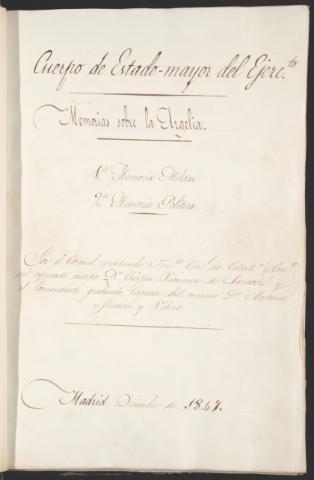 Cuerpo de Estado-mayor del Ejerc.to
Memorias sobre la Argelia.
1a Memoria Militar
2a Memoria Politica
Por el Coronel graduado Ten.te Cor.l de Caball.a y Com.te
del espresado cuerpo Dn Crispin Ximenez de Sandoval y
el comandante graduado Capitan del mismo Dn Antonio
Madera y Vivero.
Madrid Diciembre de 1847.